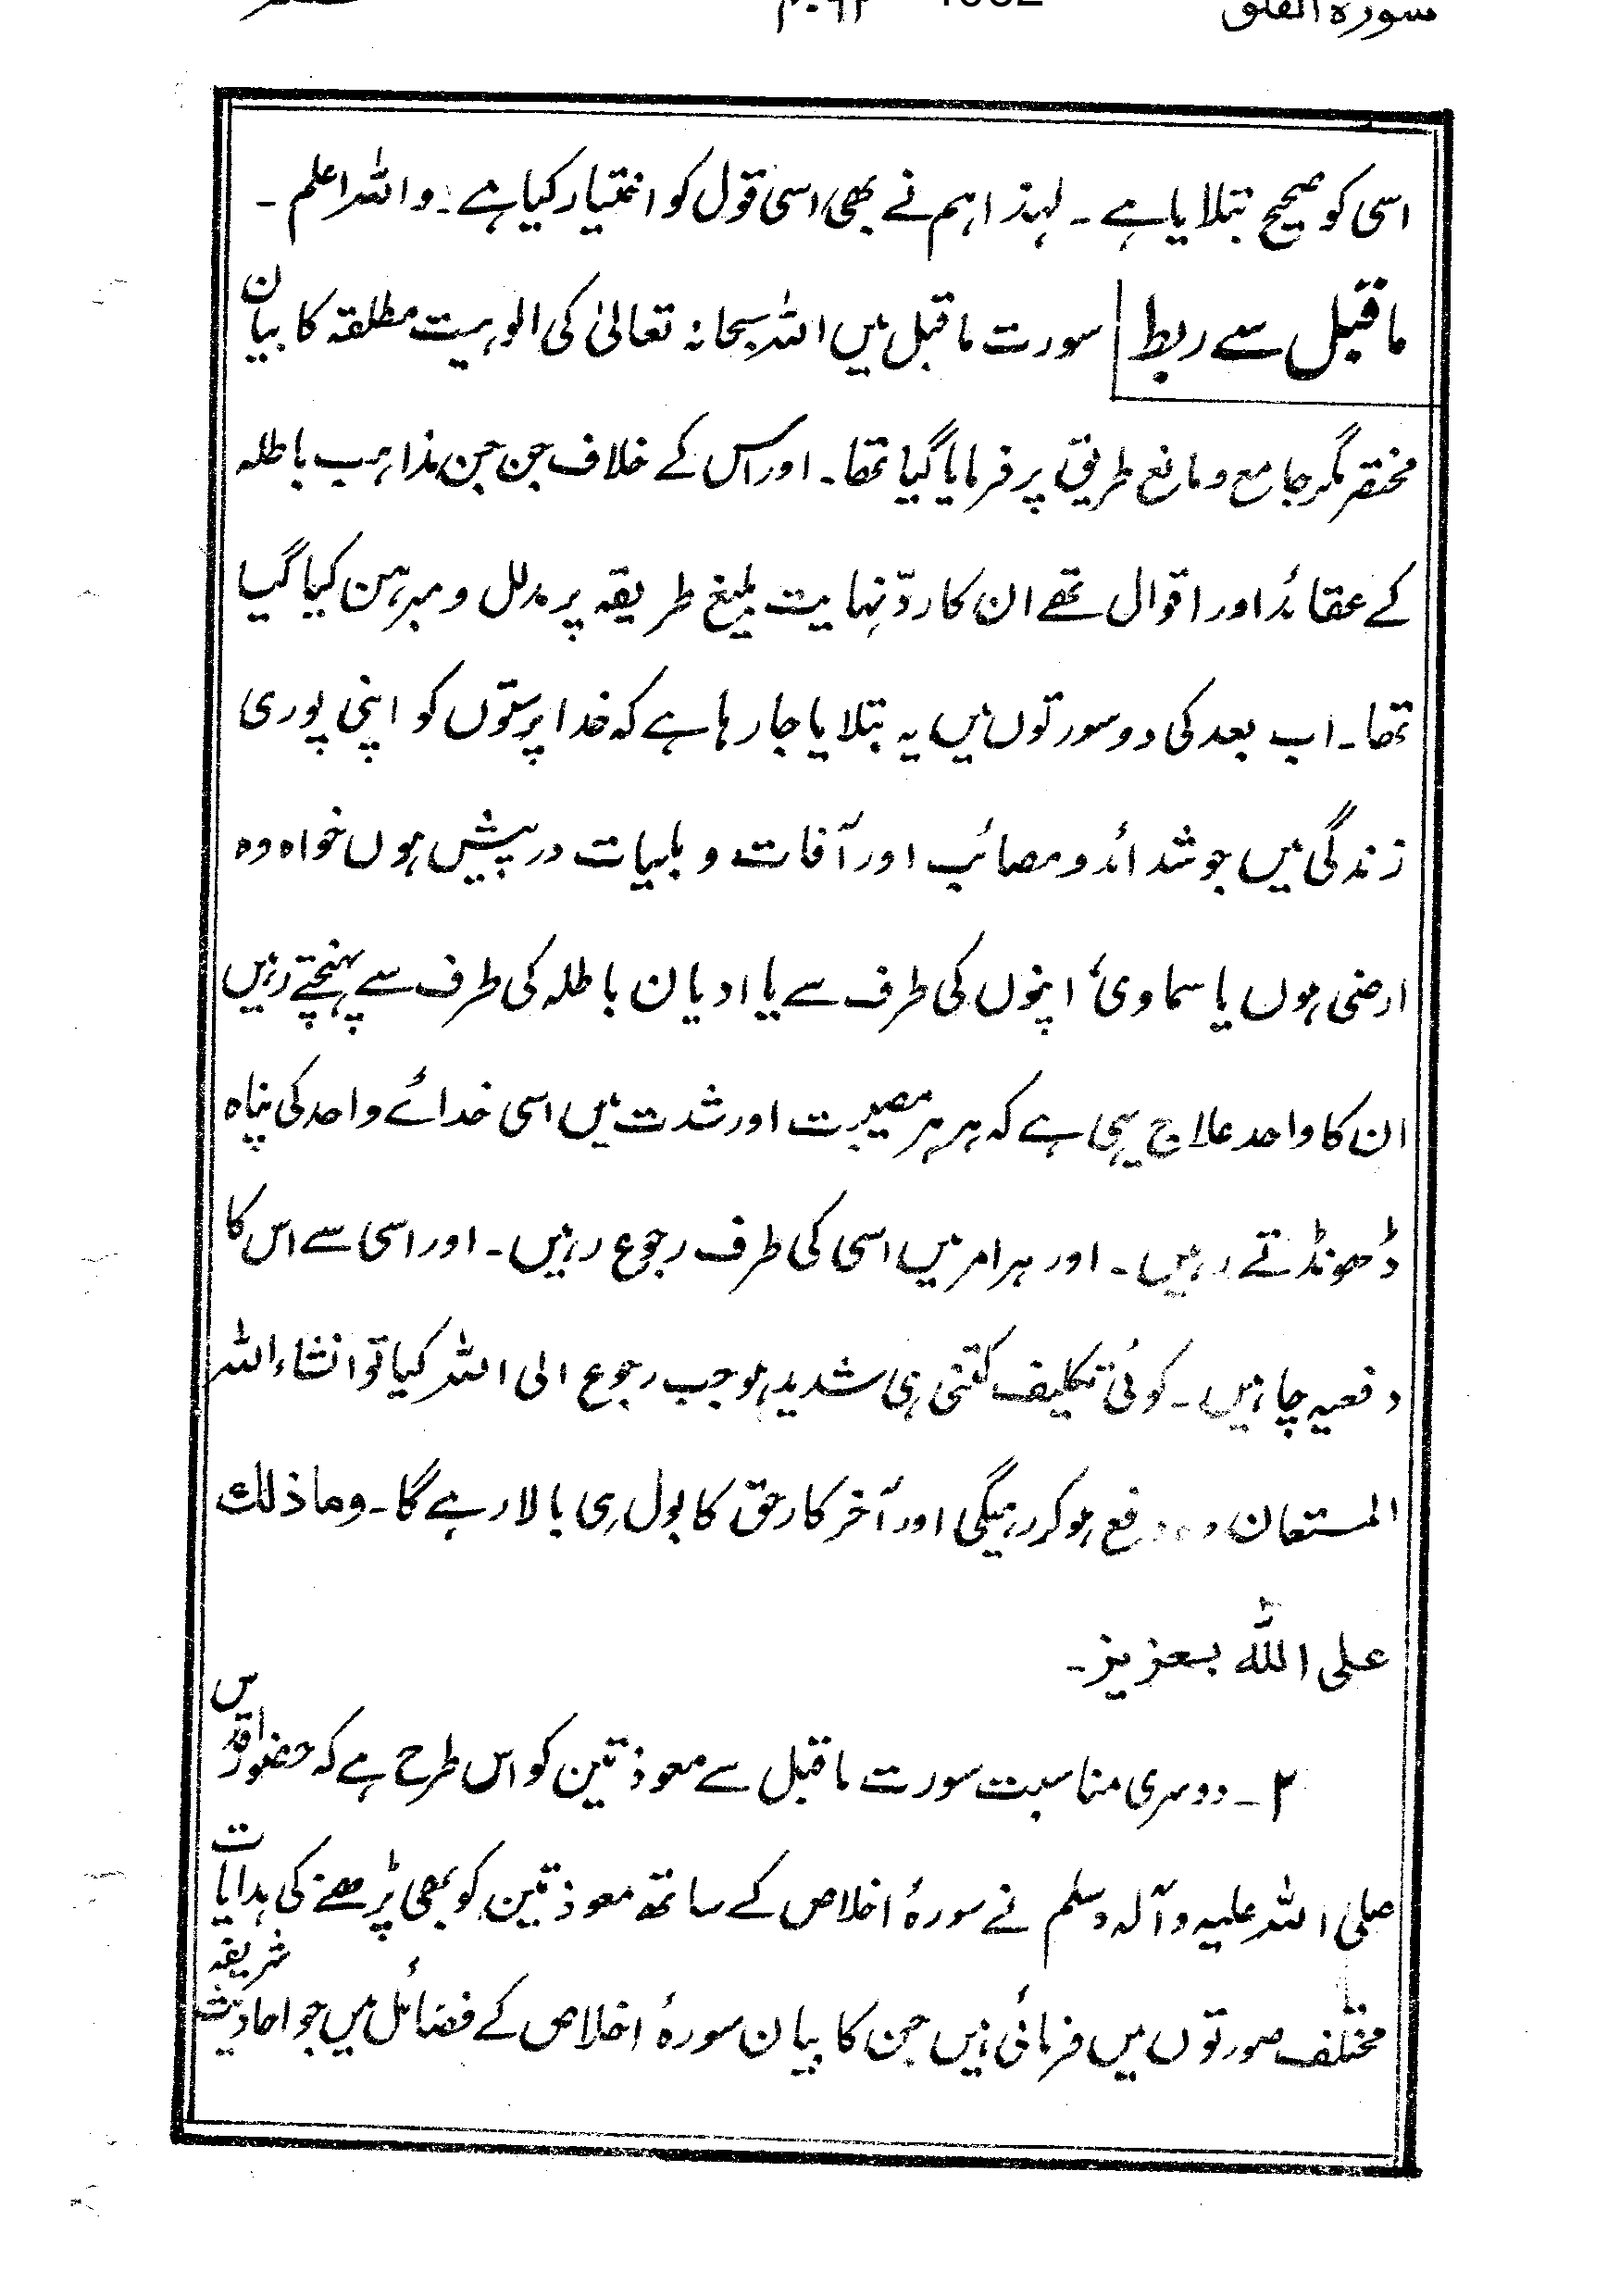 سورة الفلق
اسی کو صحیح بتلایا ہے ۔ لہذا ہم نے بھی اسی قول کو اختیار کیا ہے ۔ واللہ اعلم ۔
ماقبل سے ربط سورت ماقبل میں اللہ سبحانہ تعالیٰ کی الوہیت مطلقہ کا بیان
مختصر مگر جامع و مانع طریق پر فرمایا گیا تھا ۔ اور اس کے خلاف جن جن مذاہب باطلہ
کے عقائد اور اقوال تھے ان کا ردّ نہایت بلیغ طریقہ پر مدلل و مبرہن کیا گیا
تھا ۔ اب بعد کی دو سورتوں میں یہ بتلایا جا رہا ہے کہ خدا پرستوں کو اپنی پوری
زندگی میں جو شدائد و مصائب اور آفات و بلیات درپیش ہوں خواہ وہ
ارضی ہوں یا سماوی ٗ اپنوں کی طرف سے یا ادیان باطلہ کی طرف سے پہنچتے رہیں
ان کا واحد علاج یہی ہے کہ ہر ہر مصیبت اور شدت میں اسی خدائے واحد کی پناہ
ڈھونڈتے رہیں ۔ اور ہر امر میں اسی کی طرف رجوع رہیں ۔ اور اسی سے اس کا
دفعیہ چاہیں ۔ کوئی تکلیف کتنی ہی شدید ہو جب رجوع الی اللہ کیا تو انشاء اللہ
المستعان وہ دفع ہو کر رہیگی اور آخر کار حق کا بول ہی بالا رہے گا ۔ وما ذلك
علی اللہ بعزیز ۔
۲ ۔ دوسری مناسبت سورت ماقبل سے معوذتین کو اس طرح ہے کہ حضور اقدس
صلی اللہ علیہ و آلہ وسلم نے سورۂ اخلاص کے ساتھ معوذتین کو بھی پڑھنے کی ہدایات
مختلف صورتوں میں فرمائی ہیں جن کا بیان سورۂ اخلاص کے فضائل میں جو احادیث شریفہ